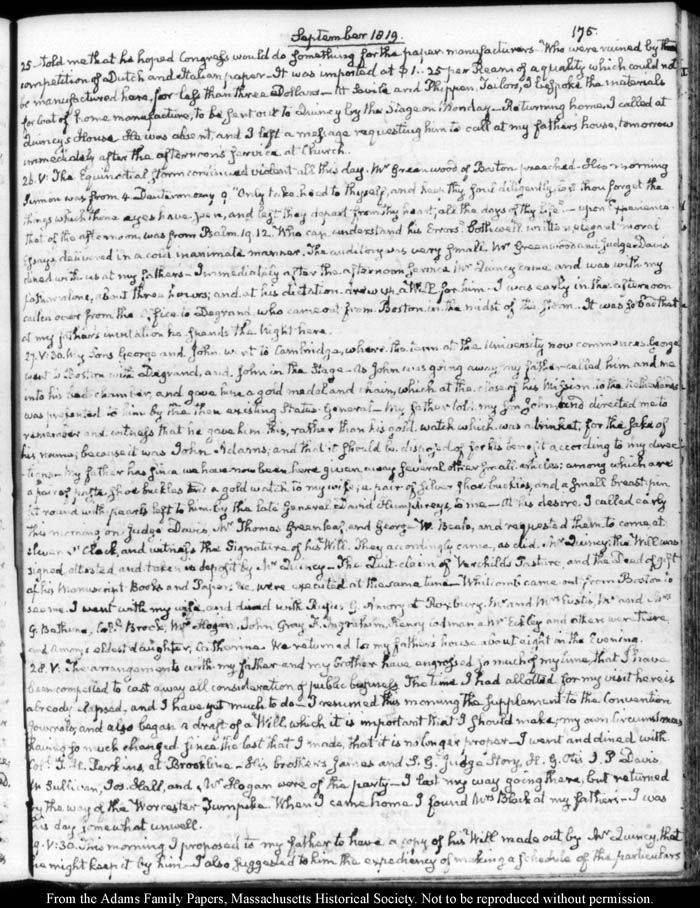 September 1819. 175.
25 - told me that he hoped Congress would do something for the paper manufacturers - Who were ruined by the
competition of Dutch and Italian paper - It was imported at $1.. 25 per Ream of a quality which could not
be manufactured here, for less than three Dollars - At Lewis and Phippen, Tailors, I bespoke the materials
for Coat of home manufacture, to be sent out to Quincy by the Stage on Monday - Returning home, I called at
Quincy's House. He was absent, and I left a message requesting him to call at my father's house, tomorrow
immediately after the afternoon's service at Church.
26. V: The Equinoctial storm continued violent all this day. Mr Greenwood of Boston preached - His morning
Sermon was from 4. Deuteronomy 9. "Only take heed to thyself, and keep thy soul diligently, lest thou forget the
things which thine eyes have seen, and lest they depart from thy heart, all the days of thy life" - upon Experience.
that of the afternoon was from Psalm 19. 12. "Who can understand his Errors? both well written elegant moral
Essays delivered in a cold inanimate manner. The auditory was very small. Mr Greenwood and Judge Davis
dined with us at my fathers - Immediately after the afternoon service Mr Quincy came and was with my
father alone, about three hours; and at his dictation drew up a Will for him - I was early in the afternoon
called over from the Office to Degrand, who came out from Boston in the midst of the storm. It was so bad that
at my father's invitation he spends the Night here.
27. V:30. My Sons George and John went to Cambridge, where the term at the University now commences. George
went to Boston with Degrand, and John in the Stage - As John was going away, my father called him and me
into his bed chamber, and gave him a gold medal and chain, which at the close of his Mission to the Netherlands
was presented to him by the then existing States-General - My father told my Son John, and directed me to
remember and witness that he gave him this, rather than his gold watch which was a trinket, for the sake of
his name, because it was John Adams; and that it should be disposed of for his benefit according to my direc-
tions - My father has since we have now been here given away several other small articles; among which are
a pair of paste shoe buckles and a gold watch to my wife; a pair of silver shoe buckles, and a small breast pin
set round with pearls left to him by the late General David Humphreys, to me - At his desire, I called early
this morning on Judge Davis, Mr Thomas Greenleaf, and George W. Beale, and requested them to come at
eleven O'Clock, and witness the Signature of his Will. They accordingly came, as did Mr Quincy; the Will was
signed, attested and taken in deposit by Mr Quincy - The Quit-claim of Verchilds pasture, and the Deed of Gift
of his Manuscript Books and Papers &c. were executed at the same time - Whitcomb came out from Boston to
see me. I went with my wife, and dined with Rufus G. Amory at Roxbury. Mr and Mrs Eustis, Mr and Mrs
G. Bethune, Coll. Brock, Mr Hogan, John Gray, F. Ingraham, Henry Codman a Mr Exley and others were there,
and Amory's eldest daughter, Catherine. We returned to my father's house about eight in the Evening.
28. V: The arrangements with my father and my brother have engrossed so much of my time, that I have
been compelled to cast away all consideration of public business. The time I had allotted for my visit here is
already elapsed, and I have yet much to do - I resumed this morning the Supplement to the Convention
Journals, and also began a draft of a Will, which it is important that I should make, my own Circumstances
having so much changed since the last that I made, that it is no longer proper - I went and dined with
Coll. T. H. Perkins, at Brookline - His brothers James and S. G. Judge Story, H. G. Otis I. P Davis,
W Sullivan, Jos. Hall, and Mr Hogan were of the party - I lost my way going there, but returned
by the way of the Worcester Turnpike. When I came home I found Mrs Black at my fathers - I was
this day somewhat unwell.
29. V:30. This morning I proposed to my father to have a copy of his Will made out by Mr Quincy, that
he might keep it by him - I also suggested to him the expediency of making a Schedule of the particulars
From the Adams Family Papers, Massachusetts Historical Society. Not to be reproduced without permission.